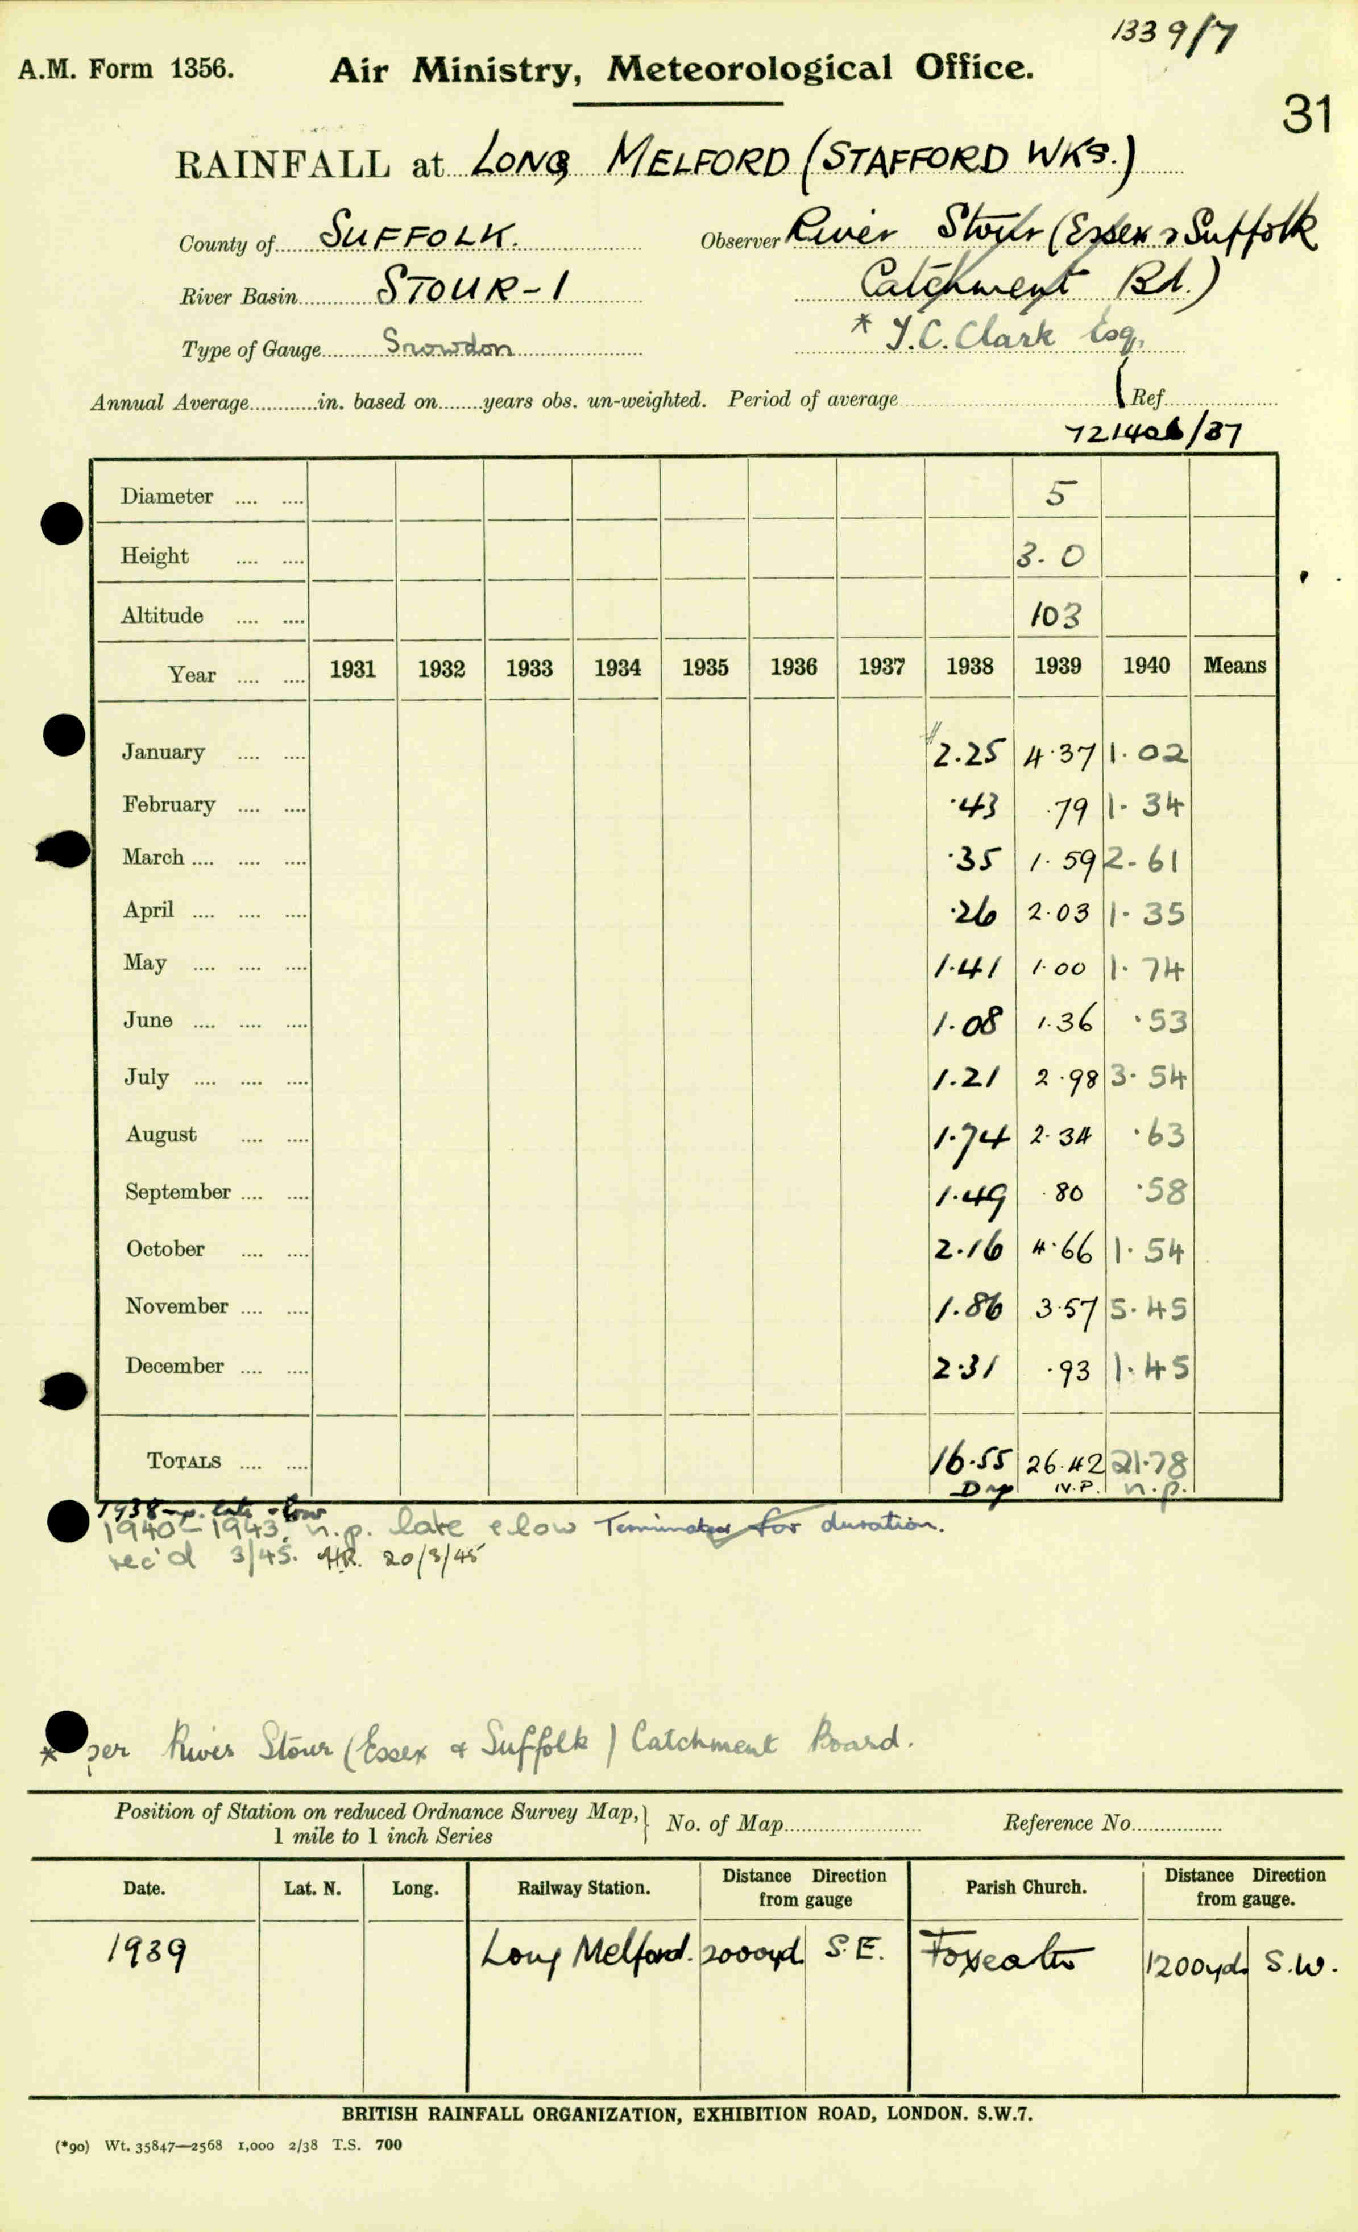 1339/7
A.M. Form 1356. Air Ministry, Meteorological Office.
31
RAINFALL at LONG MELFORD (STAFFORD WKS.)
County of SUFFOLK. Observer River Stour (Essex & Suffolk
River Basin STOUR-1 Catchment Bd.)
Type of Gauge Snowdon * Y.C. Clark Esq.
Annual Average in. based on years obs. un-weighted. Period of average Ref
/37
Diameter 5
Height 3.0
Altitude 103
Year 1931 1932 1933 1934 1935 1936 1937 1938 1939 1940 Means
January 2.25 4.37 1.02
February .43 .79 1.34
March .35 1.59 2.61
April .26 2.03 1.35
May 1.41 1.00 1.74
June 1.08 1.36 .53
July 1.21 2.98 3.54
August 1.74 2.34 .63
September 1.49 .80 .58
October 2.16 4.66 1.54
November 1.86 3.57 5.45
December 2.31 .93 1.45
TOTALS 16.55 26.42 21.78
N.P. n.p.
1938 - late low
1940-1943, n.p. late & low for duration.
rec'd 3/45. 20/3/45
* per River Stour (Essex & Suffolk) Catchment Board.
Position of Station on reduced Ordnance Survey Map, } No. of Map Reference No
1 mile to 1 inch Series
Date. Lat. N. Long. Railway Station. Distance Direction from gauge Parish Church. Distance Direction from gauge.
1939 Long Melford. 2000yd. S.E. Foxearth 1200yd. S.W.
BRITISH RAINFALL ORGANIZATION, EXHIBITION ROAD, LONDON. S.W.7.
(*90) Wt. 35847—2568 1,000 2/38 T.S. 700